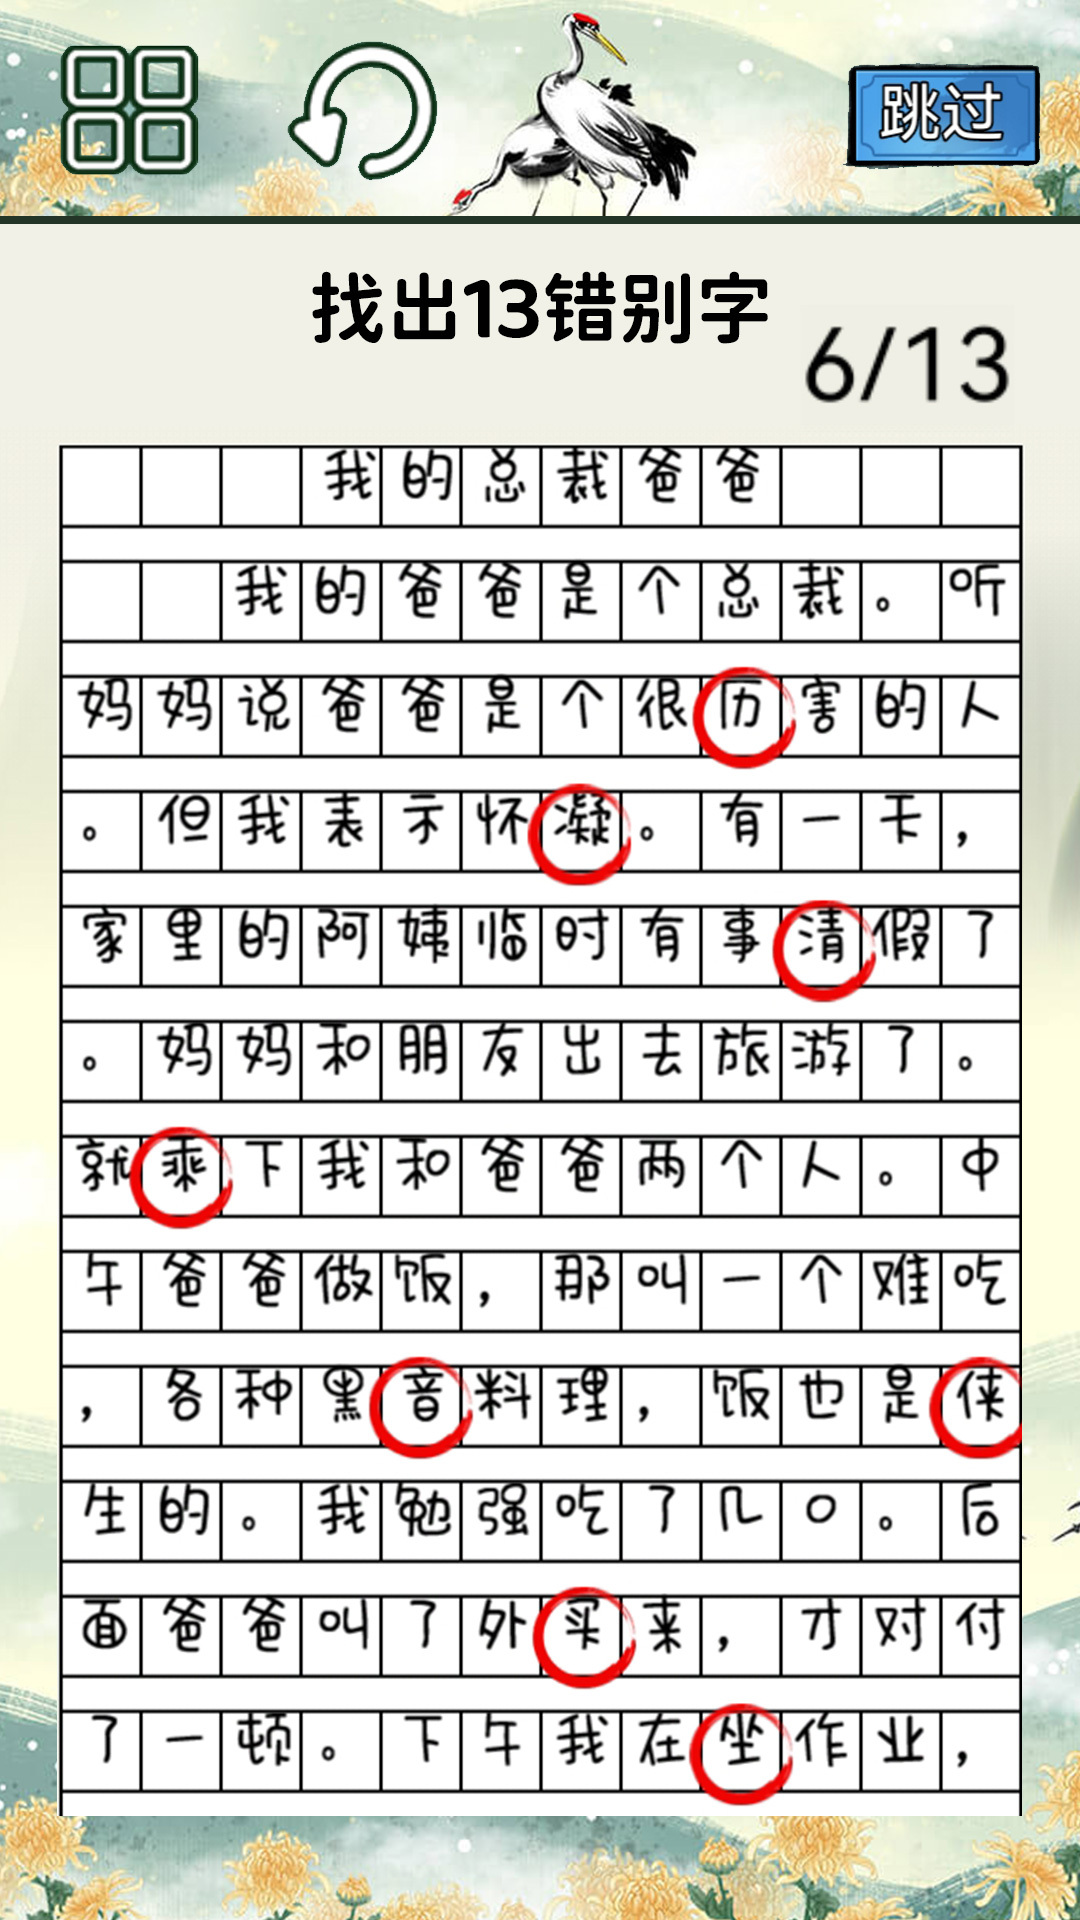 跳过
找出13错别字
6/13
我的总裁爸爸
我的爸爸是个总裁。听
妈妈说爸爸是个很历害的人
。但我表示怀凝。有一天，
家里的阿姨临时有事清假了
。妈妈和朋友出去旅游了。
就乘下我和爸爸两个人。中
午爸爸做饭，那叫一个难吃
，各种黑音料理，饭也是侠
生的。我勉强吃了几口。后
面爸爸叫了外买来，才对付
了一顿。下午我在坐作业，